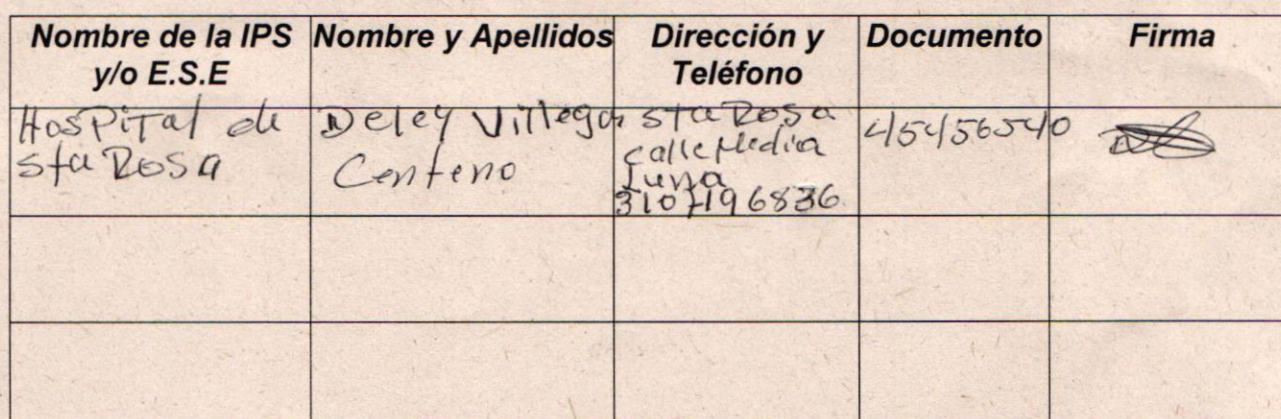 Nombre de la IPS y/o E.S.E
Nombre y Apellidos
Dirección y Teléfono
Documento
Firma
Hospital de
sta Rosa
Deley Villegas
Centeno
sta Rosa
calle Media
Luna
3107196836
45456540